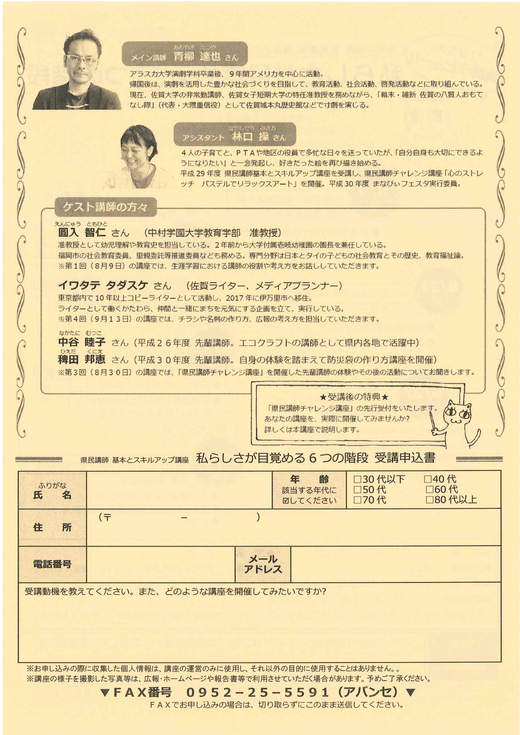 あおやぎ たつや
メイン講師 青柳 達也 さん
アラスカ大学演劇学科卒業後、9年間アメリカを中心に活動。
帰国後は、演劇を活用した豊かな社会づくりを目指して、教育活動、社会活動、啓発活動などに取り組んでいる。
現在、佐賀大学の非常勤講師、佐賀女子短期大学の特任准教授を務めながら、「幕末・維新 佐賀の八賢人おもて
なし隊」(代表・大隈重信役)として佐賀城本丸歴史館などで寸劇を演じる。
はやしぐち みさお
アシスタント 林口 操 さん
4人の子育てと、PTAや地区の役員で多忙な日々を送っていたが、「自分自身も大切にできるよ
うになりたい」と一念発起し、好きだった絵を再び描き始める。
平成29年度 県民講師基本とスキルアップ講座を受講し、県民講師チャレンジ講座「心のストレ
ッチ パステルでリラックスアート」を開催。平成30年度 まなびぃフェスタ実行委員。
ゲスト講師の方々
えんにゅう ともひと
圓入 智仁 さん (中村学園大学教育学部 准教授)
准教授として幼児理解や教育史を担当している。2年前から大学付属壱岐幼稚園の園長を兼任している。
福岡市の社会教育委員、里親委託等推進委員なども務める。専門分野は日本とタイの子どもの社会教育とその歴史、教育福祉論。
※第1回(8月9日)の講座では、生涯学習における講師の役割や考え方をお話ししていただきます。
イワタテ タダスケ さん (佐賀ライター、メディアプランナー)
東京都内で10年以上コピーライターとして活動し、2017年に伊万里市へ移住。
ライターとして働くかたわら、仲間と一緒にまちを元気にする企画を立て、実行している。
※第4回(9月13日)の講座では、チラシや名刺の作り方、広報の考え方を担当していただきます。
なかたに むつこ
中谷 睦子 さん(平成26年度 先輩講師。エコクラフトの講師として県内各地で活躍中)
ひえだ くにえ
稗田 邦恵 さん(平成30年度 先輩講師。自身の体験を踏まえて防災袋の作り方講座を開催)
※第3回(8月30日)の講座では、「県民講師チャレンジ講座」を開催した先輩講師の体験やその後の活動についてお聞きします。
★受講後の特典★
「県民講師チャレンジ講座」の先行受付をいたします。
あなたの講座を、実際に開催してみませんか?
詳しくは本講座で説明します。
県民講師 基本とスキルアップ講座 私らしさが目覚める6つの階段 受講申込書
ふりがな
氏 名
年 齢
該当する年代に
☑してください
□30代以下 □40代
□50代 □60代
□70代 □80代以上
住 所
(〒 - )
電話番号
メール
アドレス
受講動機を教えてください。また、どのような講座を開催してみたいですか?
※お申し込みの際に収集した個人情報は、講座の運営のみに使用し、それ以外の目的に使用することはありません。。
※講座の様子を撮影した写真等は、広報・ホームページや報告書等で利用させていただく場合があります。予めご了承ください。
▼FAX番号 0952-25-5591(アバンセ)▼
FAXでお申し込みの場合は、切り取らずにこのまま送信してください。